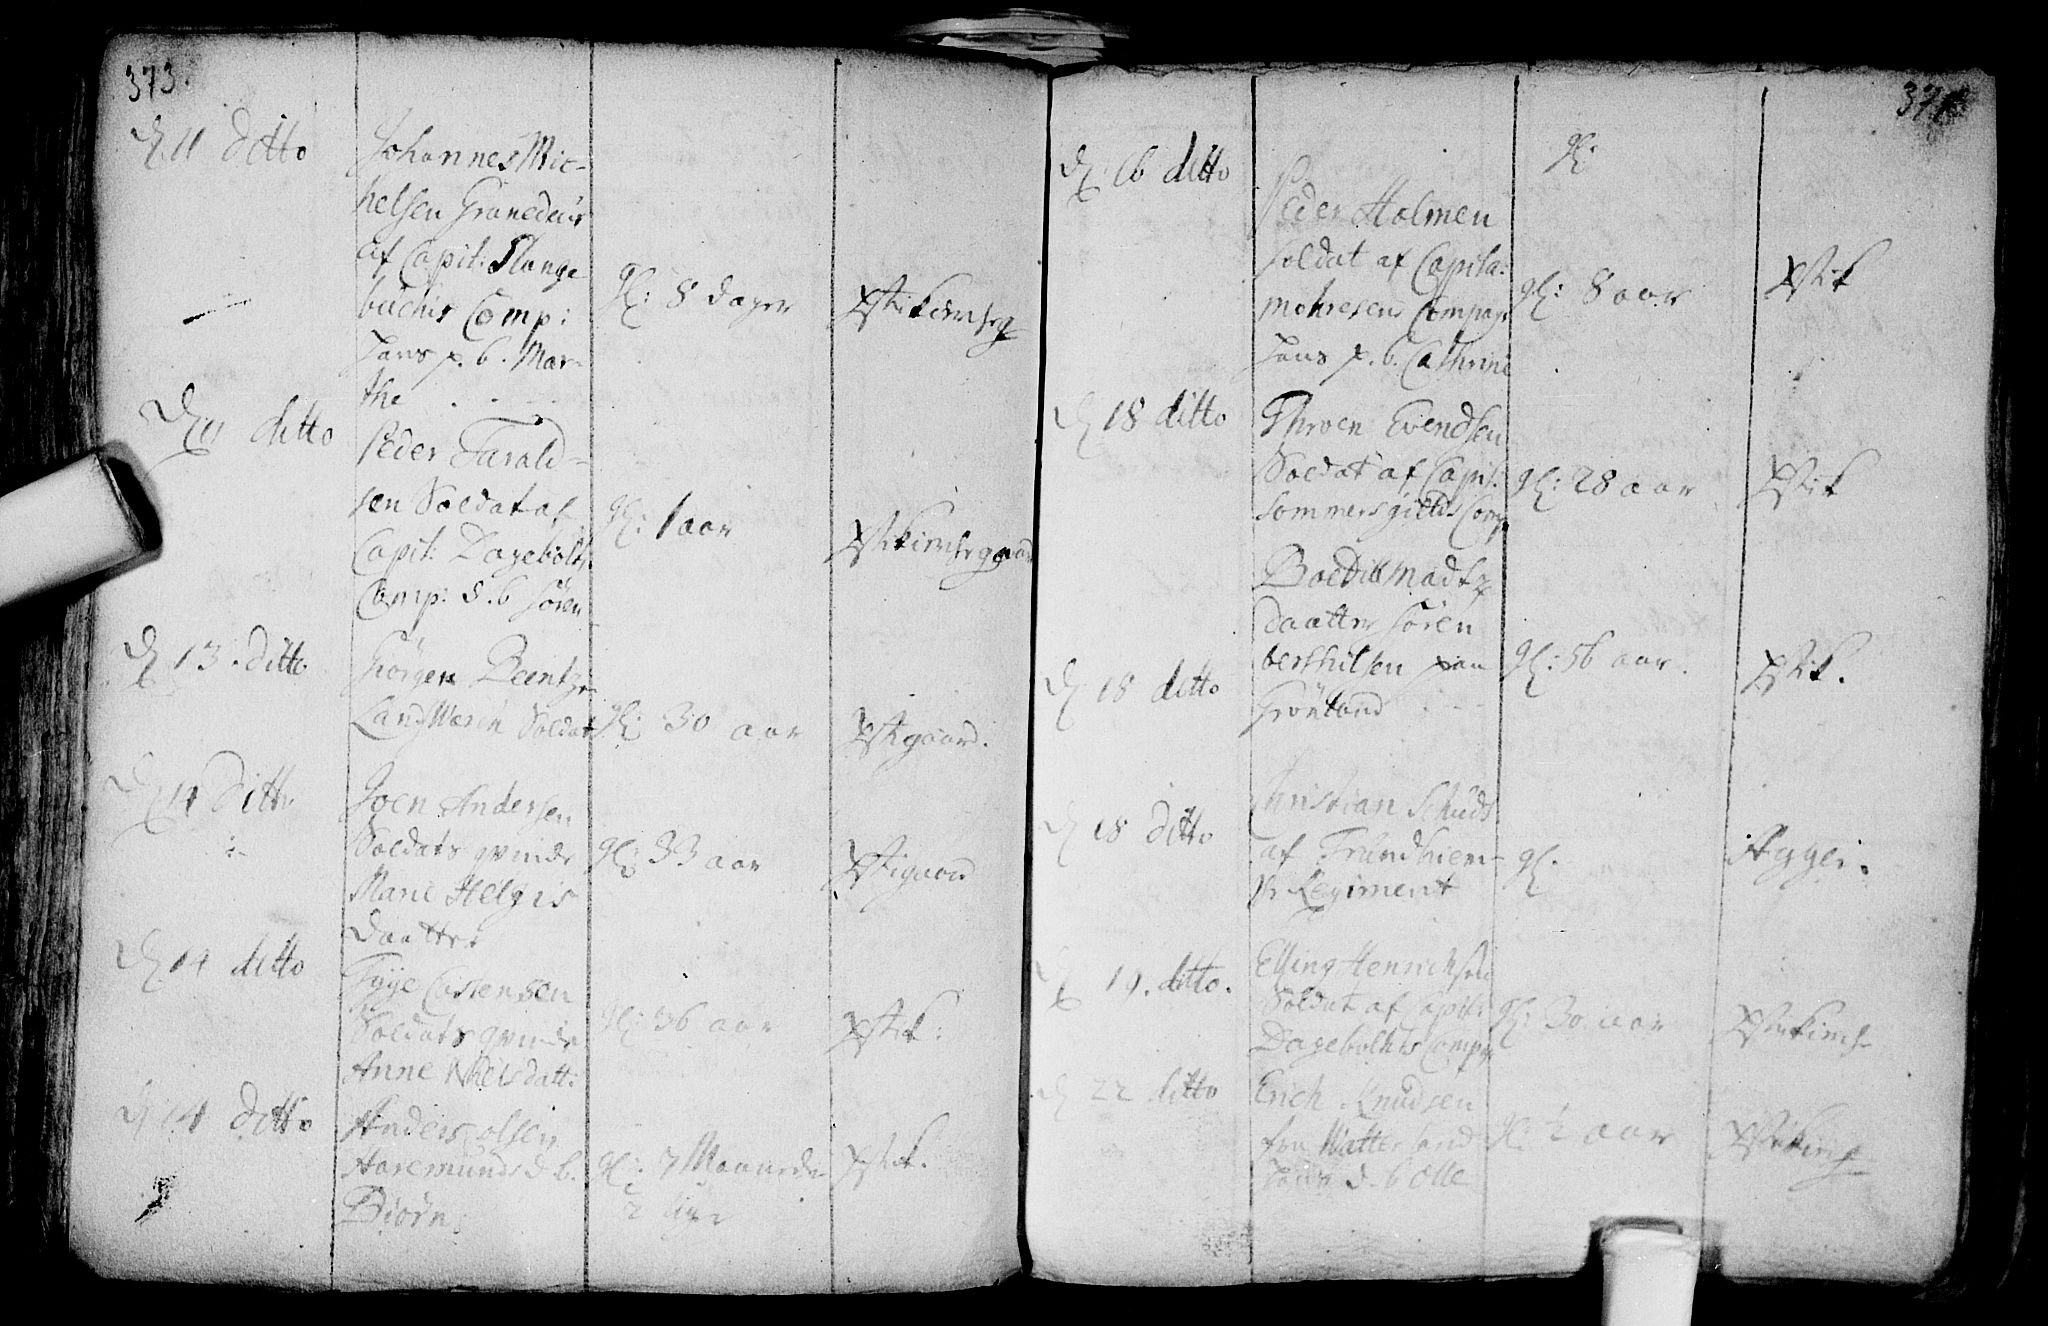 373.
D 11 ditto
Johannes Mic-
helsen Granedeur
af Capit: Slange
buches Comp:
hans p. b. Mar-
the
gl: 8 dager
D 11 ditto
Peder Tarald-
sen Soldat af
Capit: Dagebolts
Comp: d. b Sören
gl: 1 aar
D 13. ditto
Giörgen Bentz
Land Wærn Soldat
gl: 30 aar
D 14 Ditto
Joen Andersen
Soldats qvinde
Marie Helgis
daatter
gl: 33 aar
D 14 ditto
Tyge Castensen
Soldats qvinde
Anne Nielsdatt:
gl: 36 aar
D 14 ditto
Anders olsen
Aaremunds d b.
Biörn
gl: 7 Maaneder
2 uger
D 16 ditto
gl:
Peder Holmen
Soldat af Capita:
mohresens Compag
hans p. b. Cathrine
gl: 8 aar
D 18 ditto
Throen Evendsen
Soldat af Capit:
Sommersgields Comp
gl: 28 aar
D 18 ditto
Boedill Madtz
daatter Sören
berthilsen paa
Grönland
gl: 56 aar.
D 18 ditto
Christian Schuds
af Trundhiem-
sr Regiment
gl.
Aggei.
D 19. ditto.
Elling Henrichsen
Soldat af Capit:
Dagebolhts Compag
gl: 30 aar
D 22 ditto
Erich Knudsen
fra Watterland
hans d. b Olle
gl: ½ aar